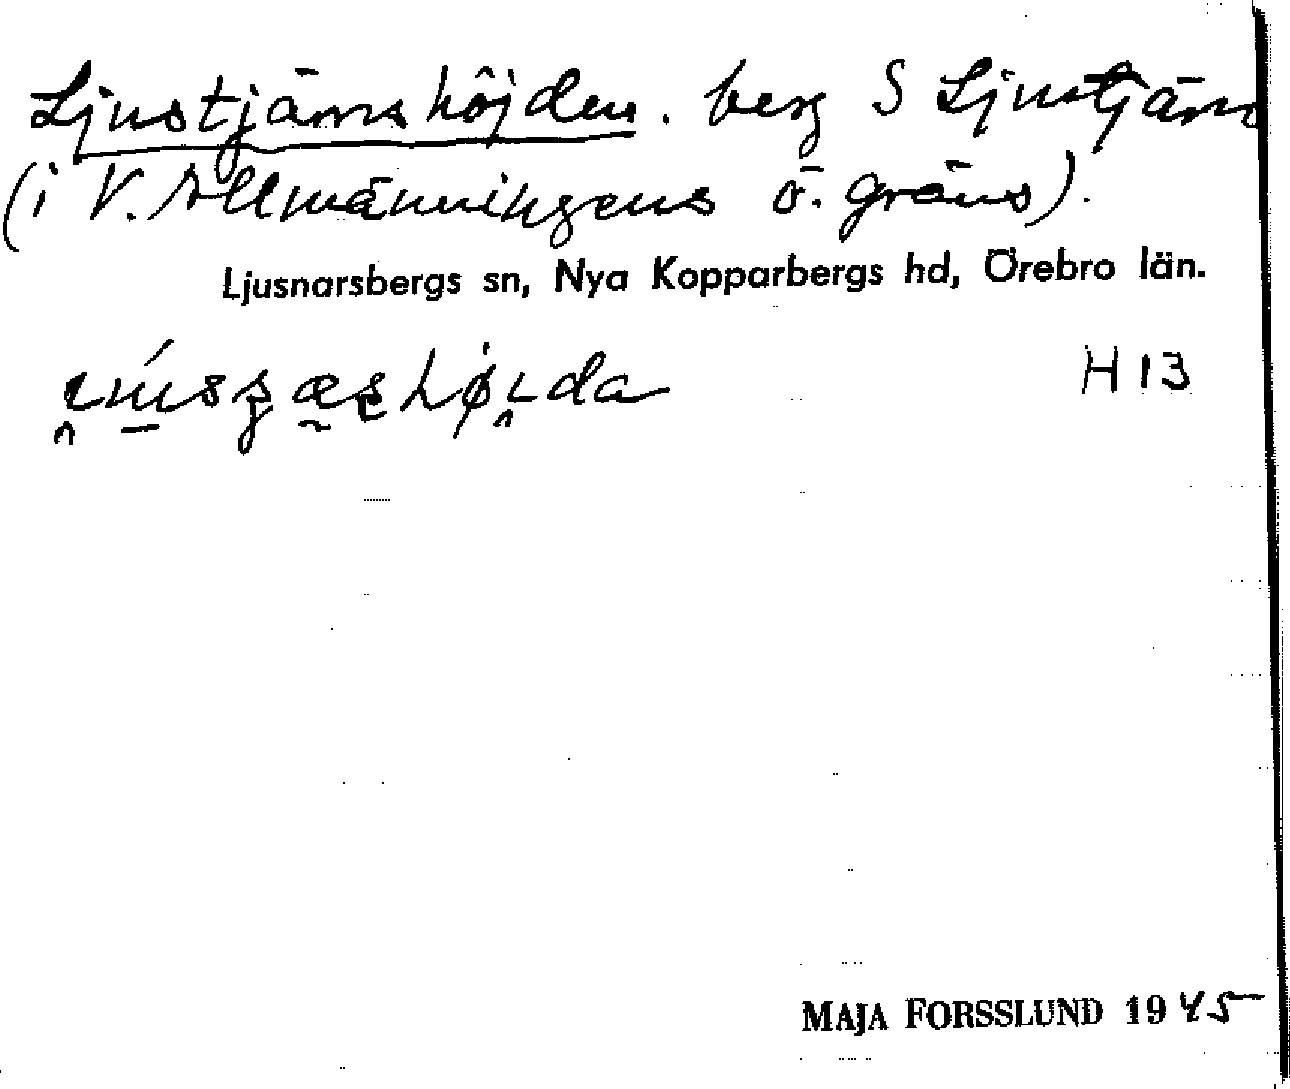 Ljustjärnshöjden. berg S Ljustjärn
(i V. Allmänningens ö. gräns).
Ljusnarsbergs sn, Nya Kopparbergs hd, Örebro län.
H 13
MAJA FORSSLUND 1945